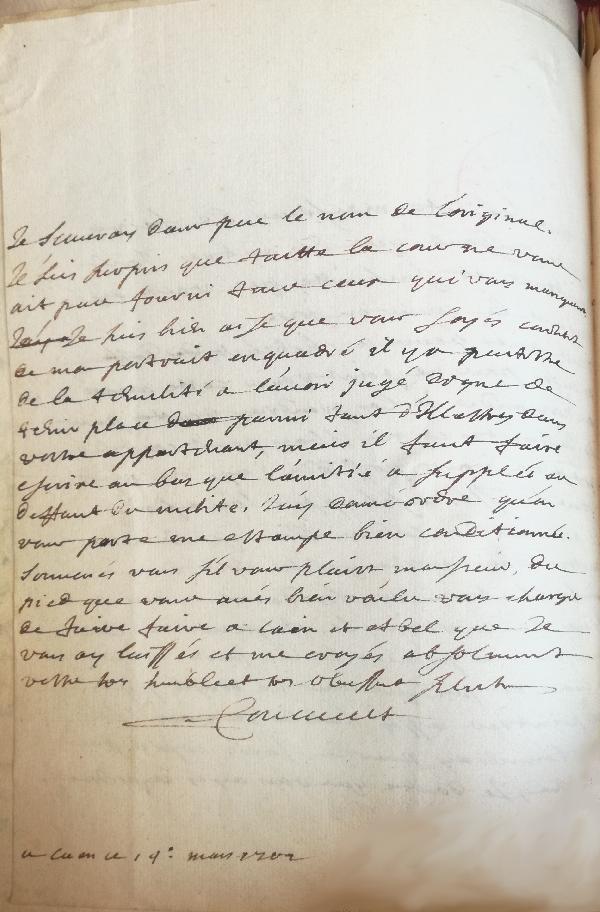 Je scauray dans peu le nom de l'original.
Je suis surpris que toutte la cour ne vous
ait pas fourni tous ceux qui vous manquent
Je suis bien aise que vous soyés content
de mon portrait enquadré il y a peutestre
de la a l'avoir jugé digne de
tenir place parmi tant d'Illustres dans
vostre appartement, mais il faut faire
escrire au bas que l'amitié a supplée au
deffaut du merite. J'ay donné ordre qu'on
vous porte une estampe bien conditionnée.
souvenés vous s'il vous plaist monsieur, du
pied que vous avés bien voulu vous charger
de faire faire a cain et abel que Je
vous ay laissés et me croyés absolument
vostre tres humble et tres obeissant
a Caen ce 19e mars 1702